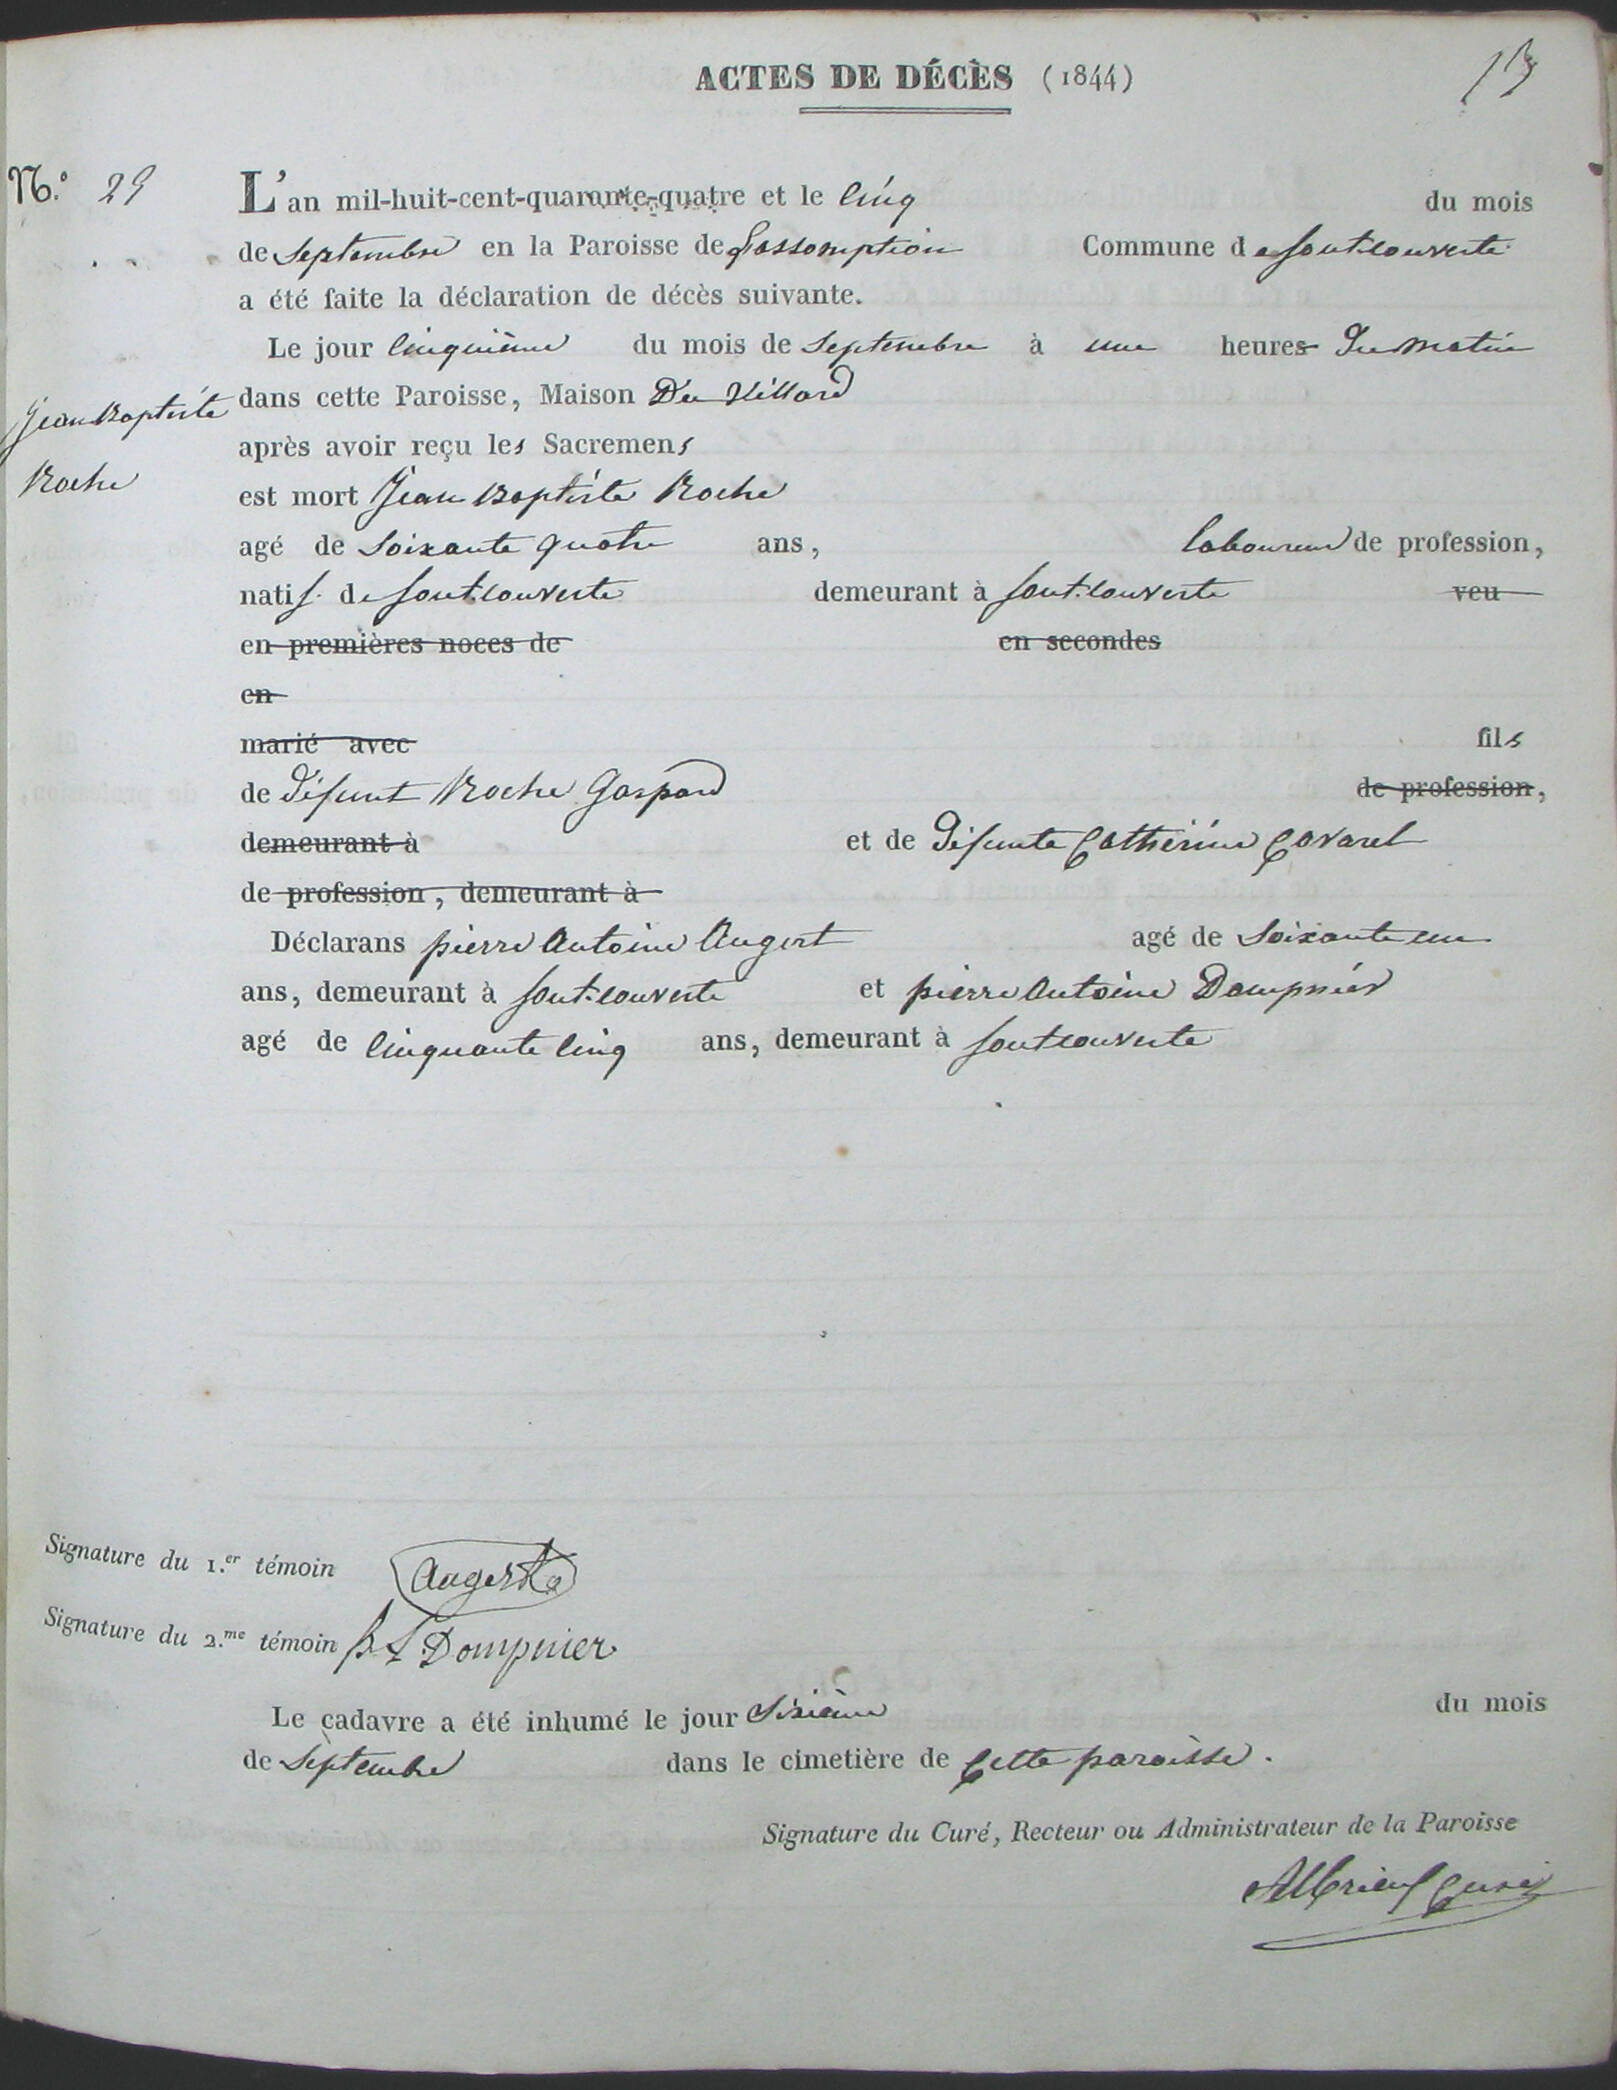 ACTES DE DÉCÈS (1844)
13
N.o 29
L'an mil-huit-cent-quarante-quatre et le Cinq du mois
de Septembre en la Paroisse de Lassomption Commune de fontcouverte
a été faite la déclaration de décès suivante.
Le jour Cinquième du mois de Septembre à une heures Du matin
dans cette Paroisse, Maison Du Villard
Jean Baptiste
Roche
après avoir reçu les Sacremens
est mort Jean Baptiste Roche
agé de Soixante quatre ans, laboureur de profession,
natif de fontcouverte demeurant à fontcouverte veu
en premières noces de en secondes
en
marié avec fils
de Défunt Roche Gaspard de profession,
demeurant à et de Défunte Catherine Covarel
de profession, demeurant à
Déclarans pierre Antoine Augert agé de Soixante un
ans, demeurant à fontcouverte et pierre Antoine Dompnier
agé de Cinquante Cinq ans, demeurant à fontcouverte
Signature du 1.er témoin Augert
Signature du 2.me témoin Dompnier
Le cadavre a été inhumé le jour Sixième du mois
de Septembre dans le cimetière de Cette paroisse.
Signature du Curé, Recteur ou Administrateur de la Paroisse
Curé